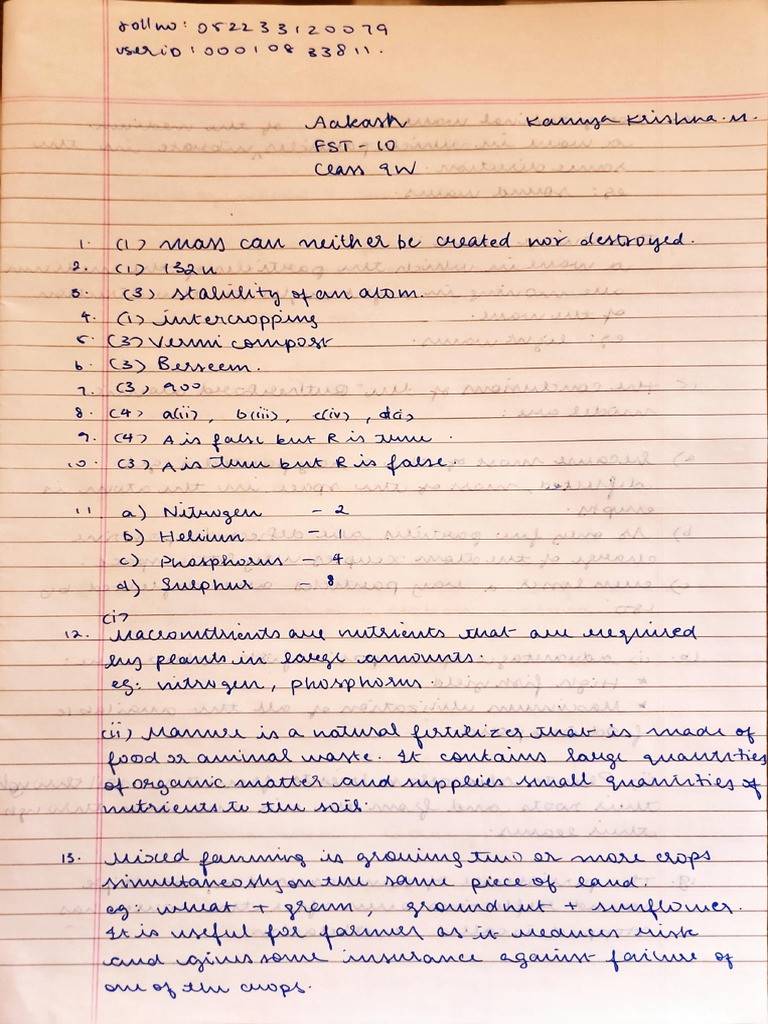 roll no: 052233120079
user ID: 00010833811.
Aakash Kamya Krishna.M.
FST - 10
Class 9W
1. (1) mass can neither be created nor destroyed.
2. (1) 132u
3. (3) stability of an atom.
4. (1) intercropping
5. (3) Vermi compost
6. (3) Berseem.
7. (3) 900
8. (4) a(ii), b(iii), c(iv), d(i)
9. (4) A is false but R is true.
10. (3) A is true but R is false.
11 a) Nitrogen - 2
b) Helium - 1
c) Phosphorus - 4
d) Sulphur - 8
(i)
12. Macronutrients are nutrients that are required
by plants in large amounts.
eg: nitrogen, phosphorus.
(ii) Manure is a natural fertilizer that is made of
food or animal waste. It contains large quantities
of organic matter and supplies small quantities of
nutrients to the soil.
13. Mixed farming is growing two or more crops
simultaneously on the same piece of land.
eg: wheat + gram, groundnut + sunflower.
It is useful for farmer as it reduces risk
and gives some insurance against failure of
one of the crops.